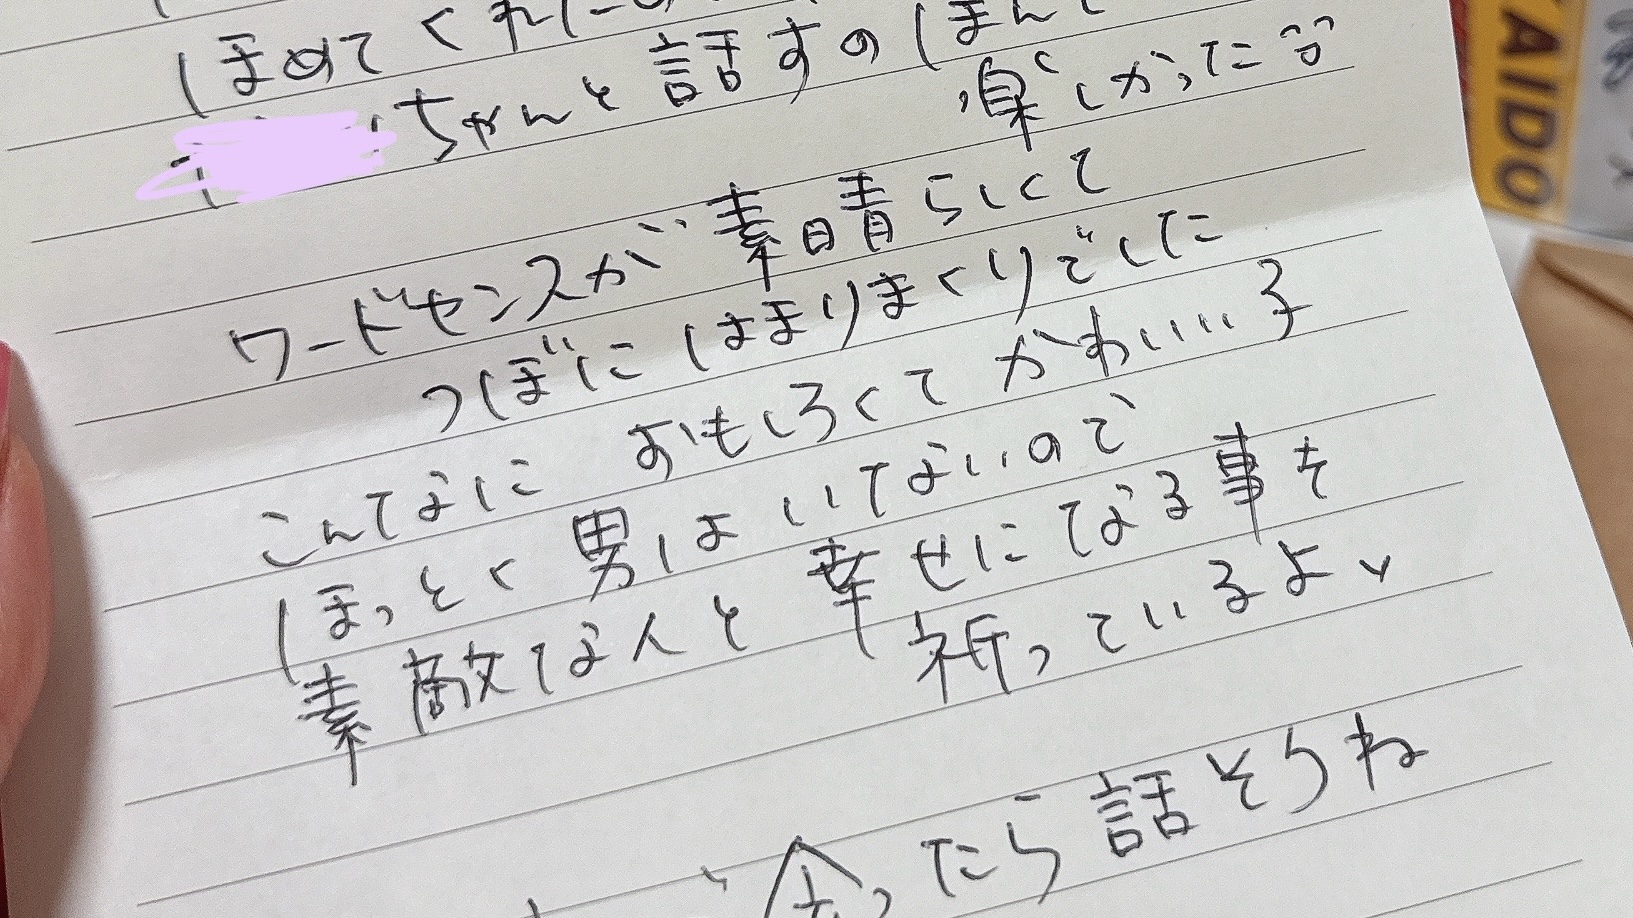 ほめてくれた
ちゃんと話すのほんと
楽しかった
ワードセンスが素晴らしくて
つぼにはまりまくりでした
こんなに おもしろくてかわいい子
ほっとく男はいてないので
素敵な人と幸せになる事を
祈っているよ
会ったら話そうね
AIDO